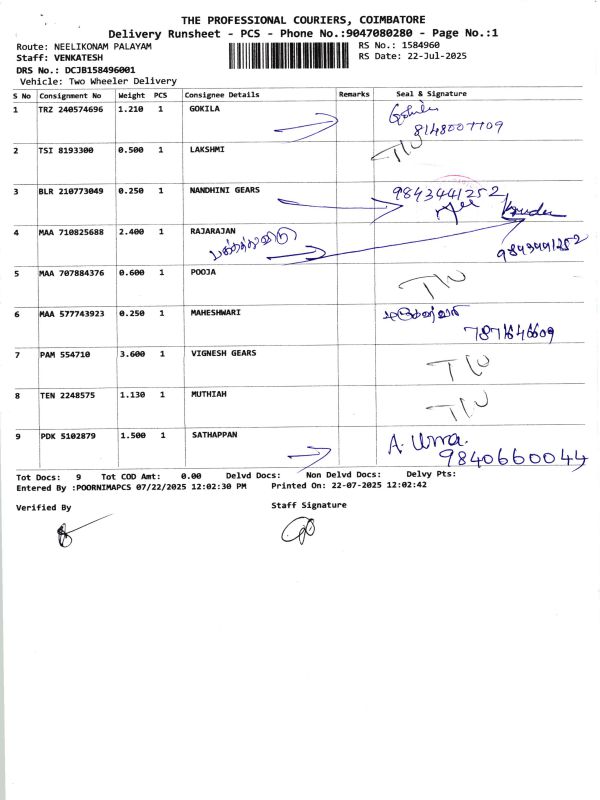 THE PROFESSIONAL COURIERS, COIMBATORE
Delivery Runsheet - PCS - Phone No.:9047080280 - Page No.:1
Route: NEELIKONAM PALAYAM
RS No.: 1584960
Staff: VENKATESH
RS Date: 22-Jul-2025
DRS No.: DCJB158496001
Vehicle: Two Wheeler Delivery
S No Consignment No Weight PCS Consignee Details Remarks Seal & Signature
1 TRZ 240574696 1.210 1 GOKILA Gokila
8148007709
2 TSI 8193300 0.500 1 LAKSHMI T/U
3 BLR 210773049 0.250 1 NANDHINI GEARS 9843441252
4 MAA 710825688 2.400 1 RAJARAJAN
பக்கத்து வீடு 9843441252
5 MAA 707884376 0.600 1 POOJA T/U
6 MAA 577743923 0.250 1 MAHESHWARI
7871646609
7 PAM 554710 3.600 1 VIGNESH GEARS T/U
8 TEN 2248575 1.130 1 MUTHIAH T/U
9 PDK 5102879 1.500 1 SATHAPPAN A. Uma.
9840660044
Tot Docs: 9 Tot COD Amt: 0.00 Delvd Docs: Non Delvd Docs: Delvy Pts:
Entered By :POORNIMAPCS 07/22/2025 12:02:30 PM Printed On: 22-07-2025 12:02:42
Verified By Staff Signature